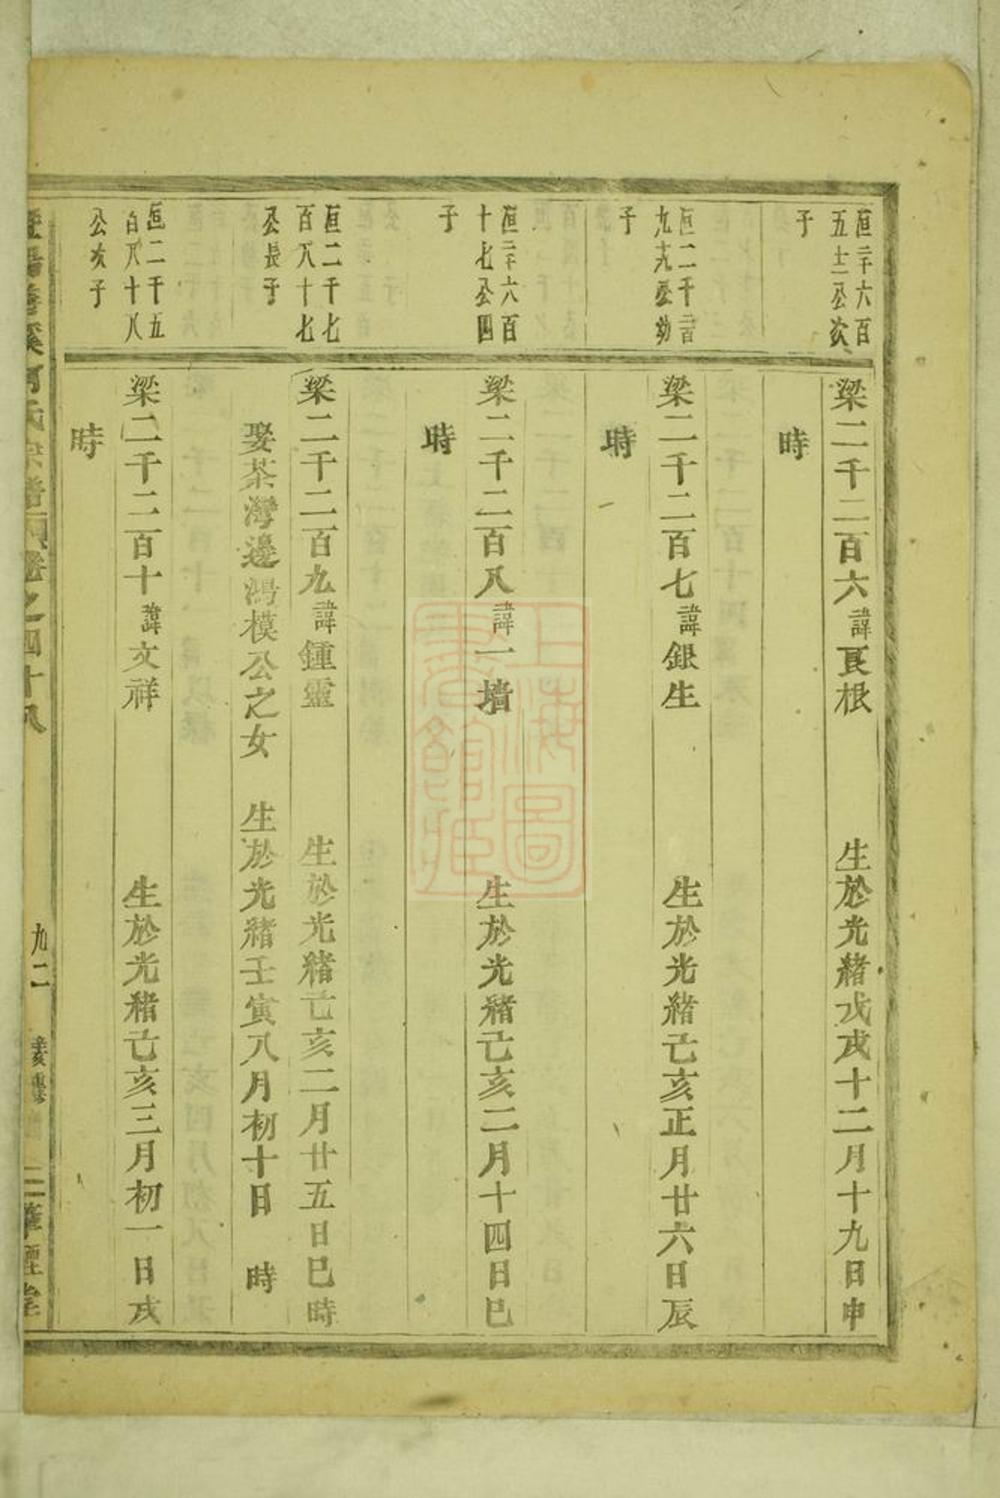 恒二千六百
五十二公次
子
梁二千二百六諱良根 生於光緒戊戌十二月十九日申
時
恒二千一百
九十九公幼
子
梁二千二百七諱銀生 生於光緒己亥正月廿六日辰
時
恒二千六百
十七公四
子
梁二千二百八諱一墻 生於光緒己亥二月十四日巳
時
恒二千七
百八十七
公長子
梁二千二百九諱鍾靈 生於光緒己亥二月廿五日巳時
娶茶灣邊鴻模公之女 生於光緒壬寅八月初十日 時
恒二千五
百八十八
公次子
梁二千二百十諱文祥 生於光緒己亥三月初一日戌
時
溪何氏宗譜 卷之四十八 九二
上海圖書館藏